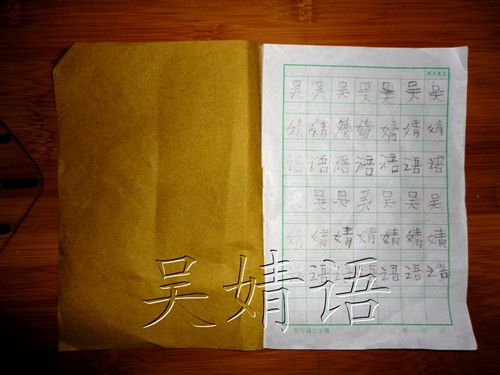 吴吴吴吴吴吴吴
婧婧婧婧婧婧婧
语语语语语语语
吴吴吴吴吴吴
婧婧婧婧婧婧婧
语语语语语语
吴婧语
年 月 日